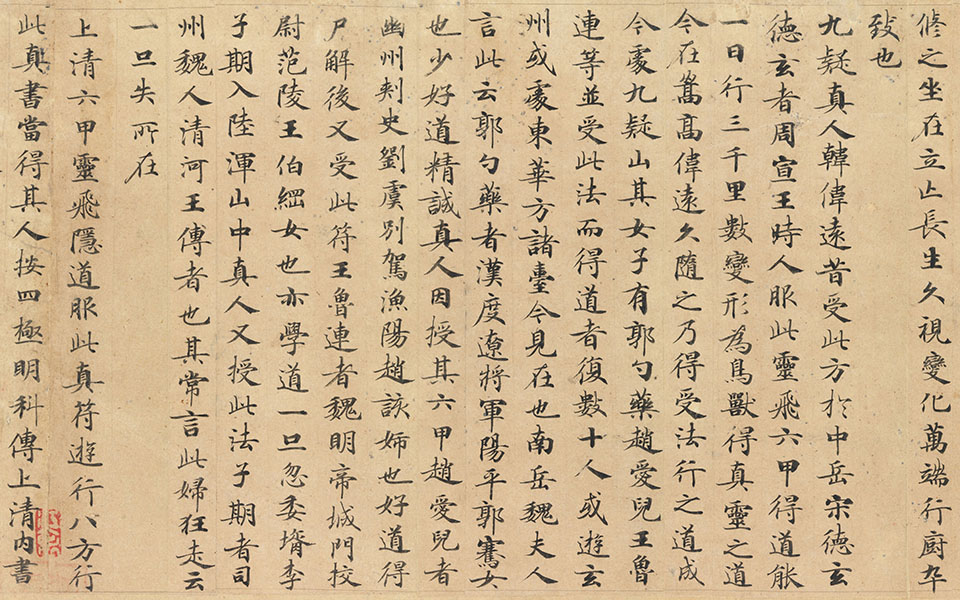 脩之坐在立亡長生久視變化萬端行厨卒
致也
九疑真人韓偉遠昔受此方於中岳宋德玄
德玄者周宣王時人服此靈飛六甲得道能
一日行三千里數變形為鳥獸得真靈之道
今在嵩高偉遠久隨之乃得受法行之道成
今處九疑山其女子有郭勺藥趙愛兒王魯
連等並受此法而得道者復數十人或遊玄
州或處東華方諸臺今見在也南岳魏夫人
言此云郭勺藥者漢度遼將軍陽平郭騫女
也少好道精誠真人因授其六甲趙愛兒者
幽州刾史劉虞別駕漁陽趙該姉也好道得
尸解後又受此符王魯連者魏明帝城門挍
尉范陵王伯綱女也亦學道一旦忽委壻李
子期入陸渾山中真人又授此法子期者司
州魏人清河王傳者也其常言此婦狂走云
一旦失所在
上清六甲靈飛隱道服此真符遊行八方行
此真書當得其人按四極明科傳上清內書